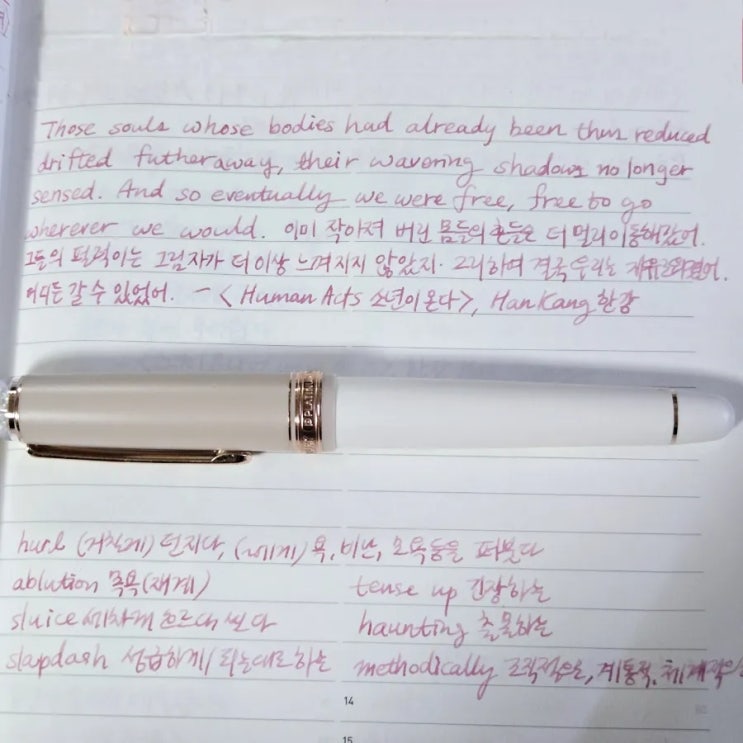 Those souls whose bodies had already been thus reduced
drifted futher away, their wavering shadows no longer
sensed. And so eventually we were free, free to go
wherever we would. 이미 작아져 버린 몸들의 혼들은 더 멀리 이동해갔어.
그들의 펄럭이는 그림자가 더이상 느껴지지 않았지. 그리하여 결국 우리는 자유로워졌어.
어디든 갈 수 있었어. - <Human Acts 소년이 온다>, Han Kang 한강
hurl (거칠게) 던지다, (~에게) 욕, 비난, 모욕등을 퍼붓다
ablution 목욕(재계) tense up 긴장하는
sluice 세차게 흐르다 씻다 haunting 출몰하는
slapdash 성급하게/되는대로 하는 methodically 조직적으로, 계통적, 체계적으
14
15